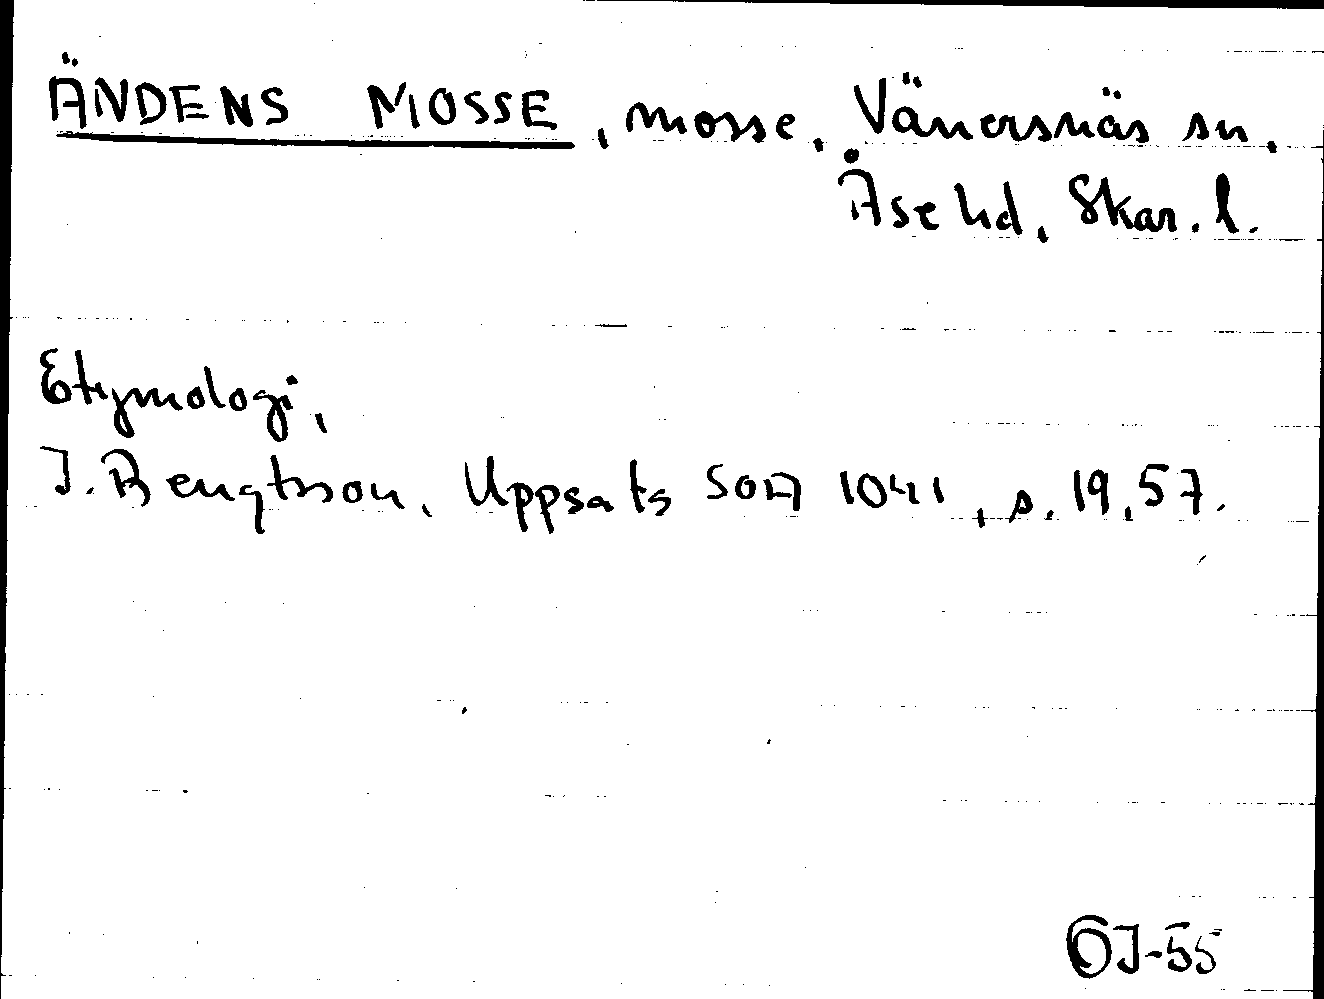 ÄNDENS MOSSE, mosse, Vänersnäs sn,
Åse hd, Skar. l.
Etymologi,
I. Bengtsson, Uppsats SOA 1041, s. 19, 57.
ÖJ-55